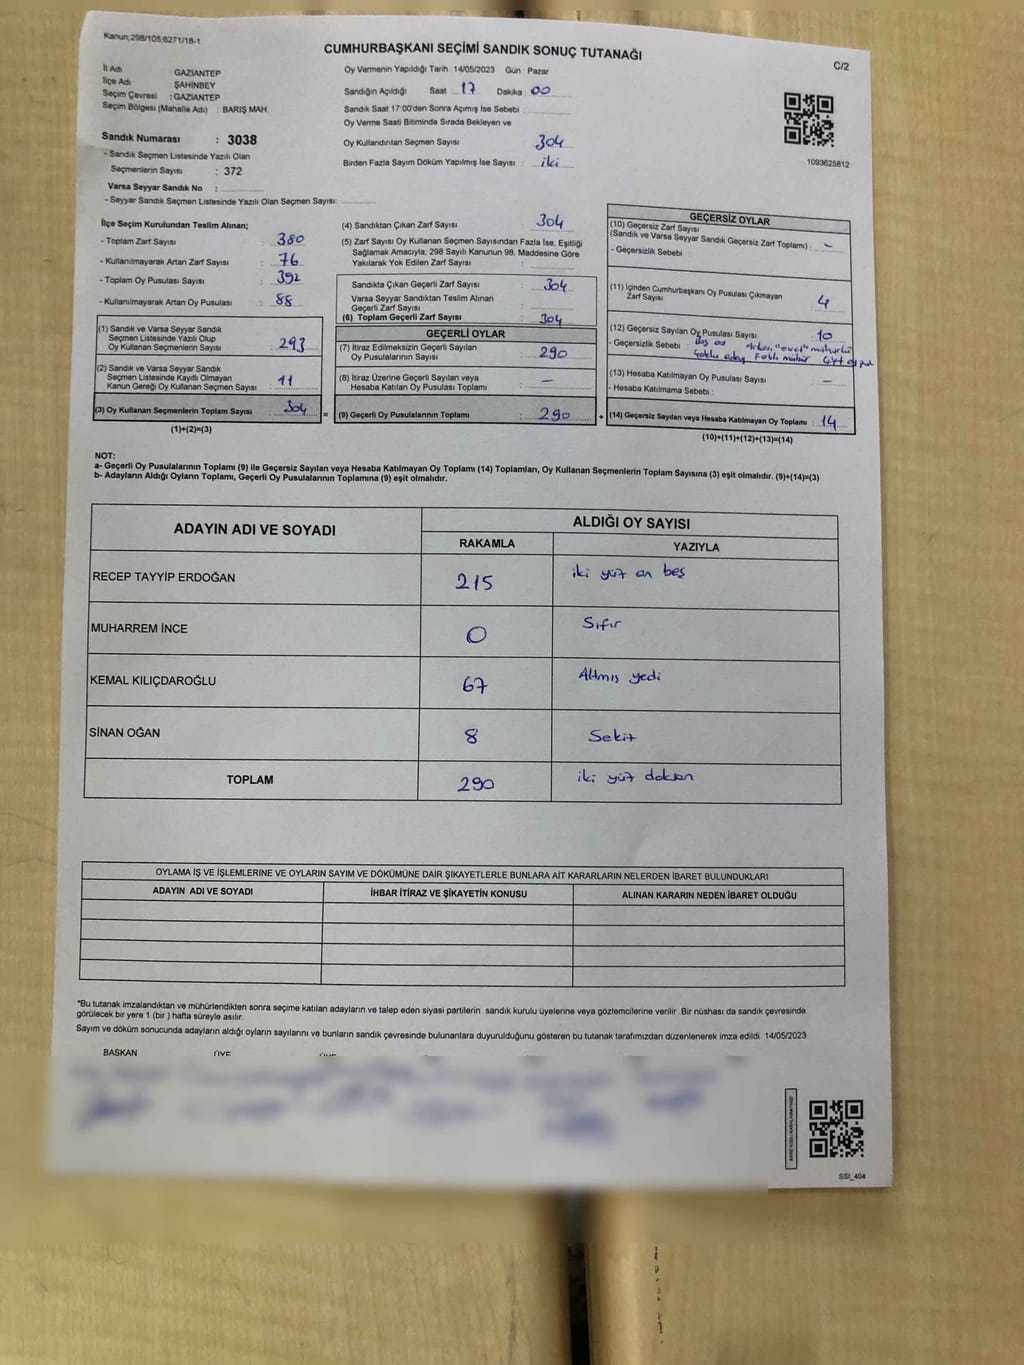 Kanun;298/105;6271/18-1
CUMHURBAŞKANI SEÇİMİ SANDIK SONUÇ TUTANAĞI
C/2
İl Adı : GAZİANTEP
İlçe Adı : ŞAHİNBEY
Seçim Çevresi : GAZİANTEP
Seçim Bölgesi (Mahalle Adı) : BARIŞ MAH.
Sandık Numarası : 3038
- Sandık Seçmen Listesinde Yazılı Olan
Seçmenlerin Sayısı : 372
Varsa Seyyar Sandık No :
- Seyyar Sandık Seçmen Listesinde Yazılı Olan Seçmen Sayısı:
Oy Vermenin Yapıldığı Tarih : 14/05/2023 Gün : Pazar
Sandığın Açıldığı Saat : 17 Dakika : 00
Sandık Saat 17:00'den Sonra Açımış İse Sebebi :
Oy Verme Saati Bitiminde Sırada Bekleyen ve
Oy Kullandırılan Seçmen Sayısı : 304
Birden Fazla Sayım Döküm Yapılmış İse Sayısı : iki
1093625812
İlçe Seçim Kurulundan Teslim Alınan;
- Toplam Zarf Sayısı : 380
- Kullanılmayarak Artan Zarf Sayısı : 76
- Toplam Oy Pusulası Sayısı : 392
- Kullanılmayarak Artan Oy Pusulası : 88
(1) Sandık ve Varsa Seyyar Sandık
Seçmen Listesinde Yazılı Olup
Oy Kullanan Seçmenlerin Sayısı : 293
(2) Sandık ve Varsa Seyyar Sandık
Seçmen Listesinde Kayıtlı Olmayan
Kanun Gereği Oy Kullanan Seçmen Sayısı : 11
(3) Oy Kullanan Seçmenlerin Toplam Sayısı : 304 =
(1)+(2)=(3)
(4) Sandıktan Çıkan Zarf Sayısı : 304
(5) Zarf Sayısı Oy Kullanan Seçmen Sayısından Fazla İse, Eşitliği
Sağlamak Amacıyla; 298 Sayılı Kanunun 98. Maddesine Göre
Yakılarak Yok Edilen Zarf Sayısı :
Sandıkta Çıkan Geçerli Zarf Sayısı : 304
Varsa Seyyar Sandıktan Teslim Alınan
Geçerli Zarf Sayısı :
(6) Toplam Geçerli Zarf Sayısı : 304
GEÇERLİ OYLAR
(7) İtiraz Edilmeksizin Geçerli Sayılan
Oy Pusulalarının Sayısı : 290
(8) İtiraz Üzerine Geçerli Sayılan veya
Hesaba Katılan Oy Pusulası Toplamı : –
(9) Geçerli Oy Pusulalarının Toplamı : 290 +
GEÇERSİZ OYLAR
(10) Geçersiz Zarf Sayısı
(Sandık ve Varsa Seyyar Sandık Geçersiz Zarf Toplamı) : –
- Geçersizlik Sebebi :
(11) İçinden Cumhurbaşkanı Oy Pusulası Çıkmayan
Zarf Sayısı : 4
(12) Geçersiz Sayılan Oy Pusulası Sayısı : 10
- Geçersizlik Sebebi : Boş oy "evet" mühürlü
Farklı mühür
(13) Hesaba Katılmayan Oy Pusulası Sayısı : –
- Hesaba Katılmama Sebebi :
(14) Geçersiz Sayılan veya Hesaba Katılmayan Oy Toplamı : 14
(10)+(11)+(12)+(13)=(14)
NOT:
a- Geçerli Oy Pusulalarının Toplamı (9) ile Geçersiz Sayılan veya Hesaba Katılmayan Oy Toplamı (14) Toplamları, Oy Kullanan Seçmenlerin Toplam Sayısına (3) eşit olmalıdır. (9)+(14)=(3)
b- Adayların Aldığı Oyların Toplamı, Geçerli Oy Pusulalarının Toplamına (9) eşit olmalıdır.
ADAYIN ADI VE SOYADI
ALDIĞI OY SAYISI
RAKAMLA YAZIYLA
RECEP TAYYİP ERDOĞAN 215 iki yüz on beş
MUHARREM İNCE 0 Sıfır
KEMAL KILIÇDAROĞLU 67 Altmış yedi
SİNAN OĞAN 8 Sekiz
TOPLAM 290 iki yüz doksan
OYLAMA İŞ VE İŞLEMLERİNE VE OYLARIN SAYIM VE DÖKÜMÜNE DAİR ŞİKAYETLERLE BUNLARA AİT KARARLARIN NELERDEN İBARET BULUNDUKLARI
ADAYIN ADI VE SOYADI İHBAR İTİRAZ VE ŞİKAYETİN KONUSU ALINAN KARARIN NEDEN İBARET OLDUĞU
*Bu tutanak imzalandıktan ve mühürlendikten sonra seçime katılan adayların ve talep eden siyasi partilerin sandık kurulu üyelerine veya gözlemcilerine verilir .Bir nüshası da sandık çevresinde
görülecek bir yere 1 (bir ) hafta süreyle asılır.
Sayım ve döküm sonucunda adayların aldığı oyların sayılarını ve bunların sandık çevresinde bulunanlara duyurulduğunu gösteren bu tutanak tarafımızdan düzenlenerek imza edildi. 14/05/2023
BAŞKAN ÜYE
SSI_404